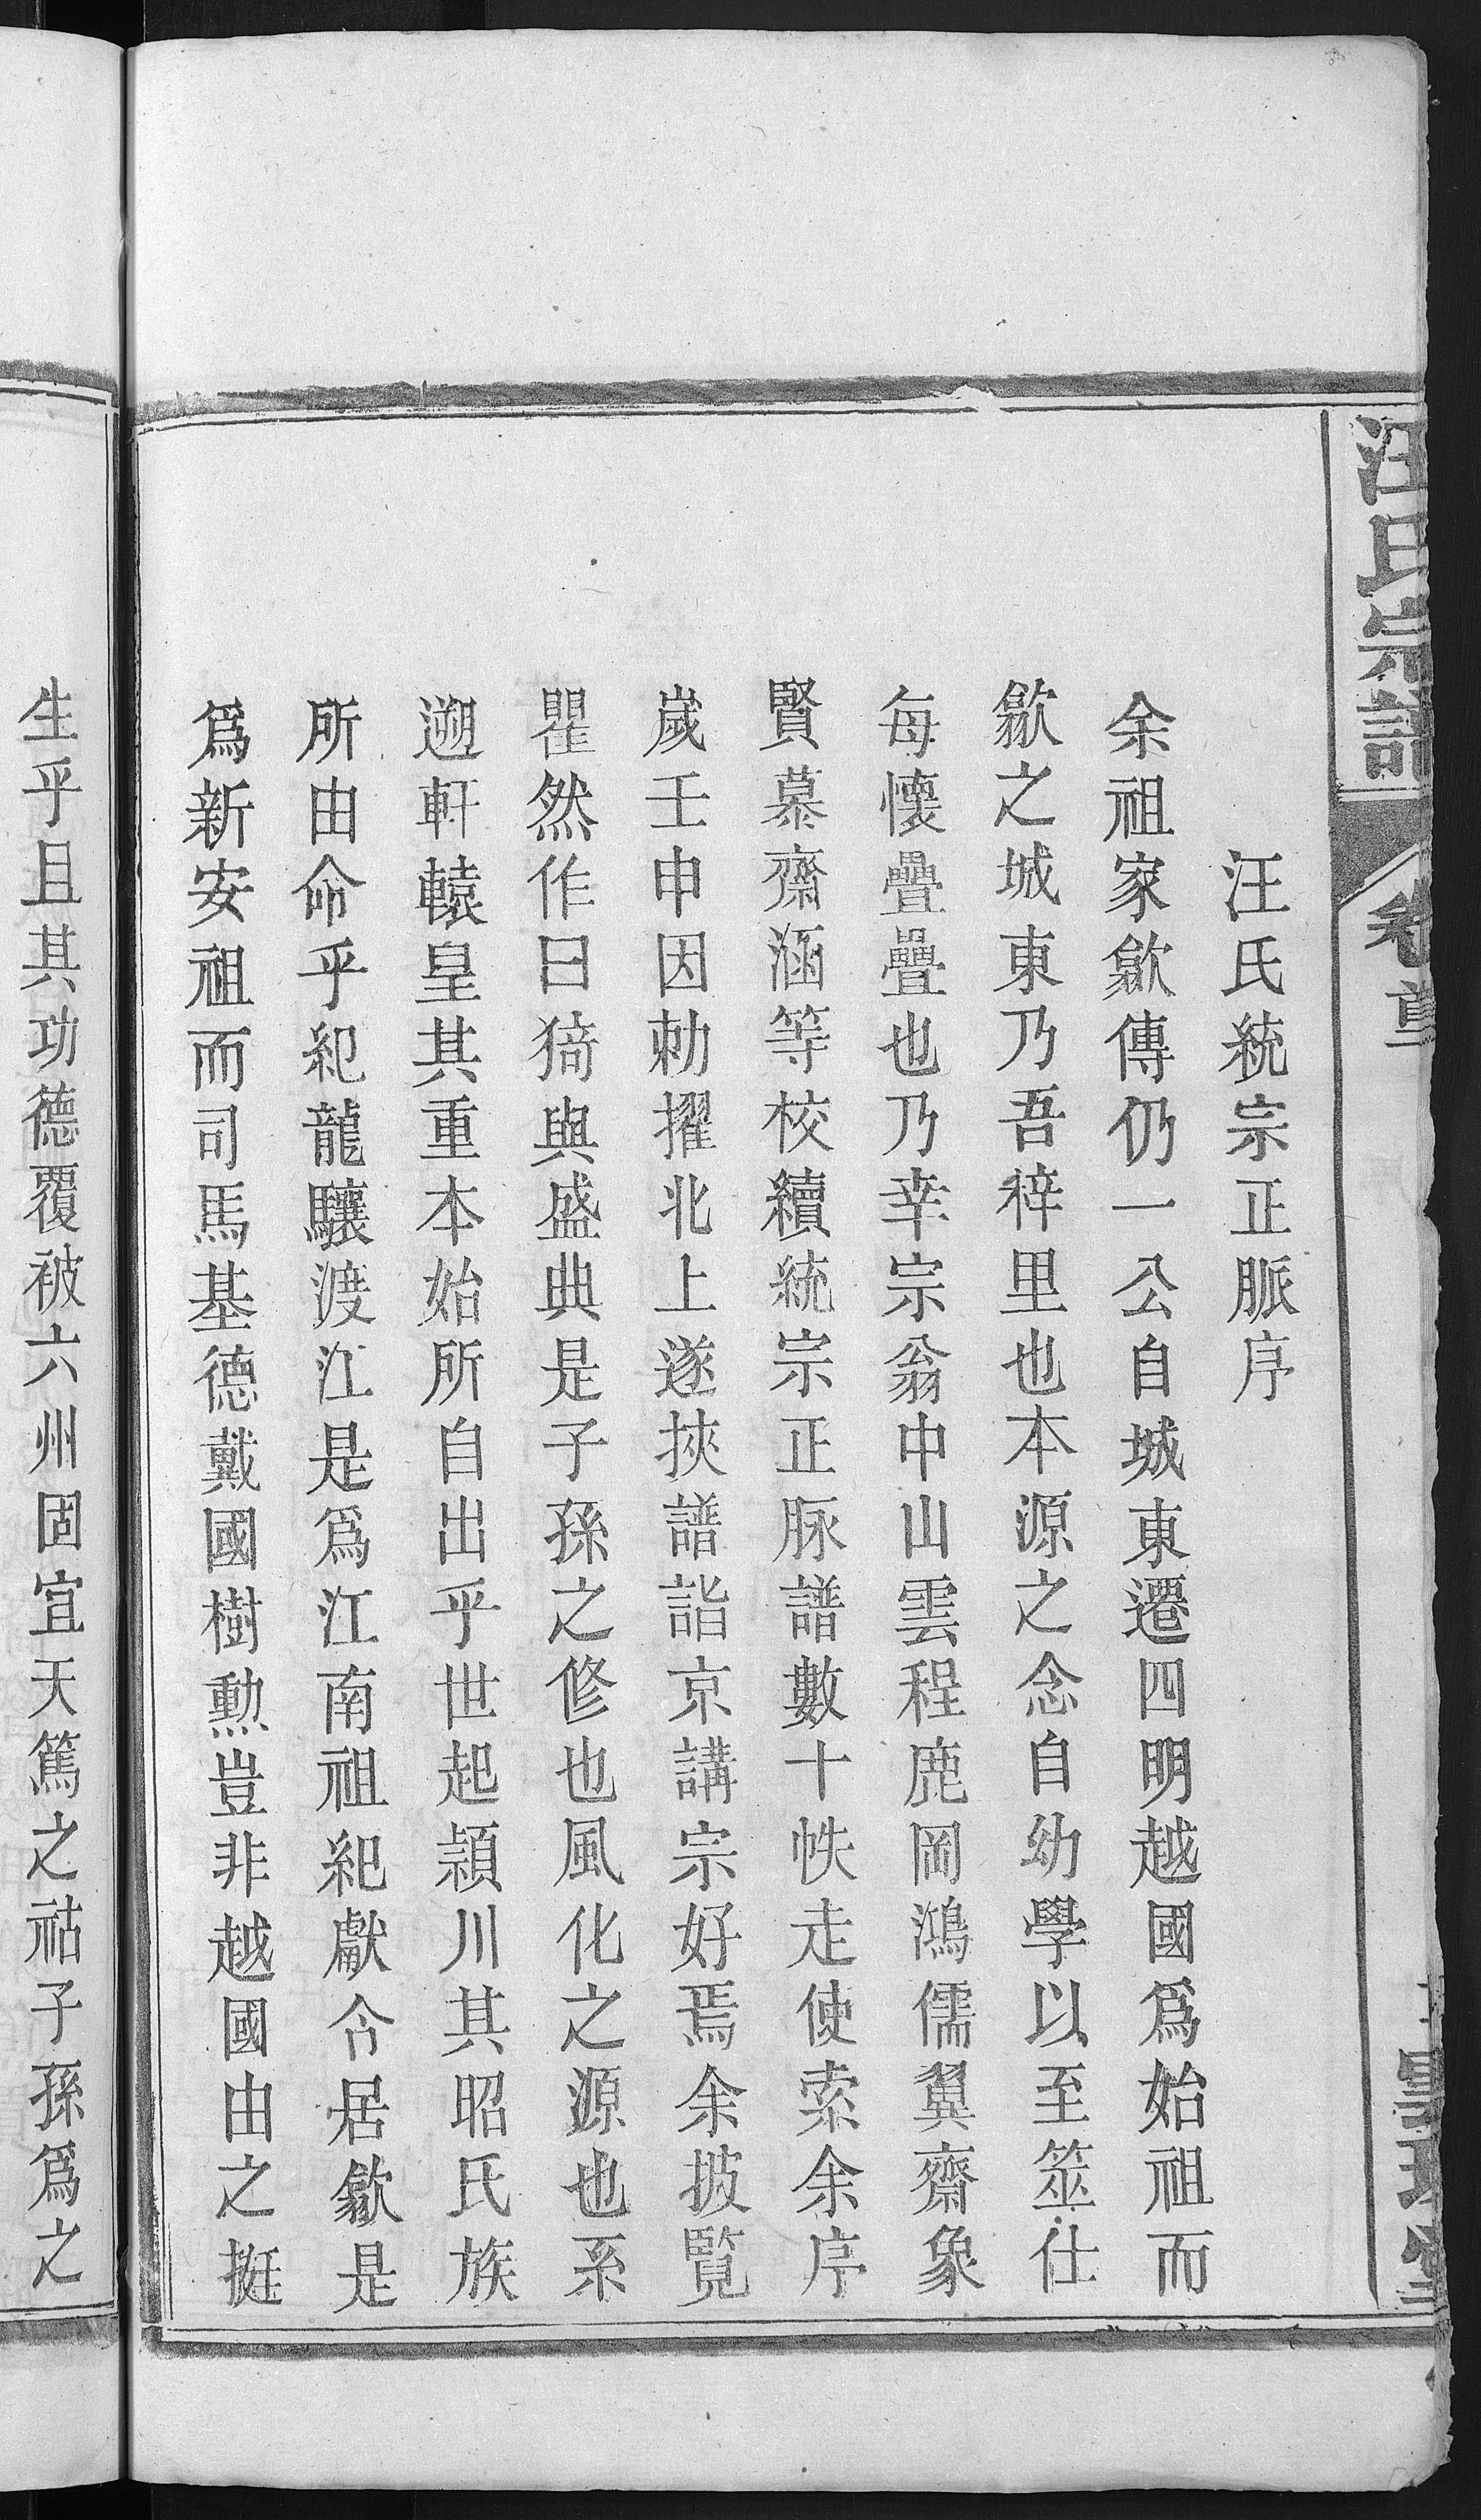 汪氏宗譜 卷首
汪氏統宗正脈序
余祖家歙傳仍一公自城東遷四明越國爲始祖而
歙之城東乃吾梓里也本源之念自幼學以至筮仕
每懷疊疊也乃幸宗翁中山雲程鹿岡鴻儒翼齋象
賢慕齋涵等校續統宗正脉譜數十帙走使索余序
歲壬申因勅擢北上遂挾譜詣京講宗好焉余披覽
瞿然作曰猗與盛典是子孫之修也風化之源也系
遡軒轅皇其重本始所自出乎世起頴川其昭氏族
所由命乎紀龍驤渡江是爲江南祖紀獻令居歙是
爲新安祖而司馬基德戴國樹勲豈非越國由之挺
生乎且其功德覆被六州固宜天篤之祜子孫爲之